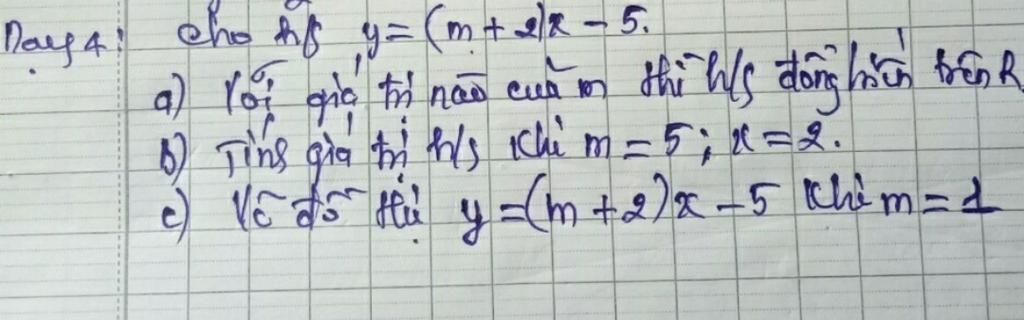 Dạng 4: Cho h/s y = (m + 2)x - 5.
a) Với giá trị nào của m thì h/s đồng biến trên R
b) Tính giá trị h/s khi m = 5; x = 2.
c) Vẽ đồ thị y = (m + 2)x - 5 khi m = 1